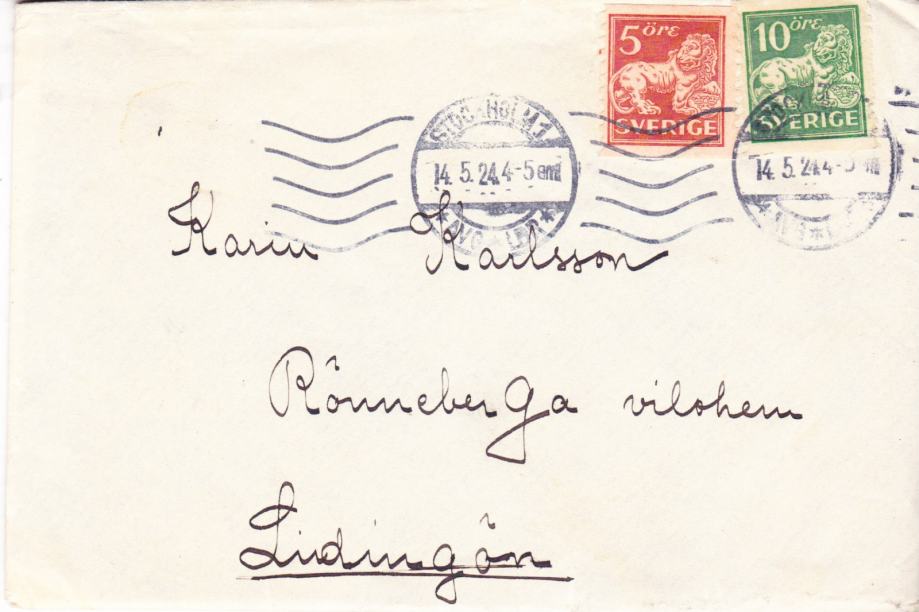 5 öre
SVERIGE
10 öre
SVERIGE
STOCKHOLM 1
14. 5. 24. 4-5 em
AVG
14. 5. 24. 4-5 em
Karin Karlsson
Rönneberga vilohem
Lidingön